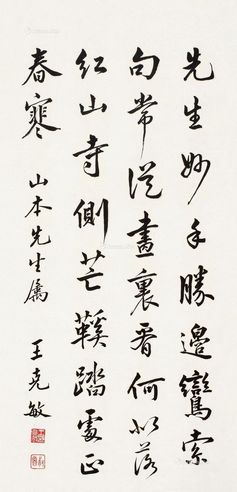 先生妙手勝邉鸞索
句常從畫裏看何似落
紅山寺側芒鞵踏處正
春寒
山本先生属
王克敏